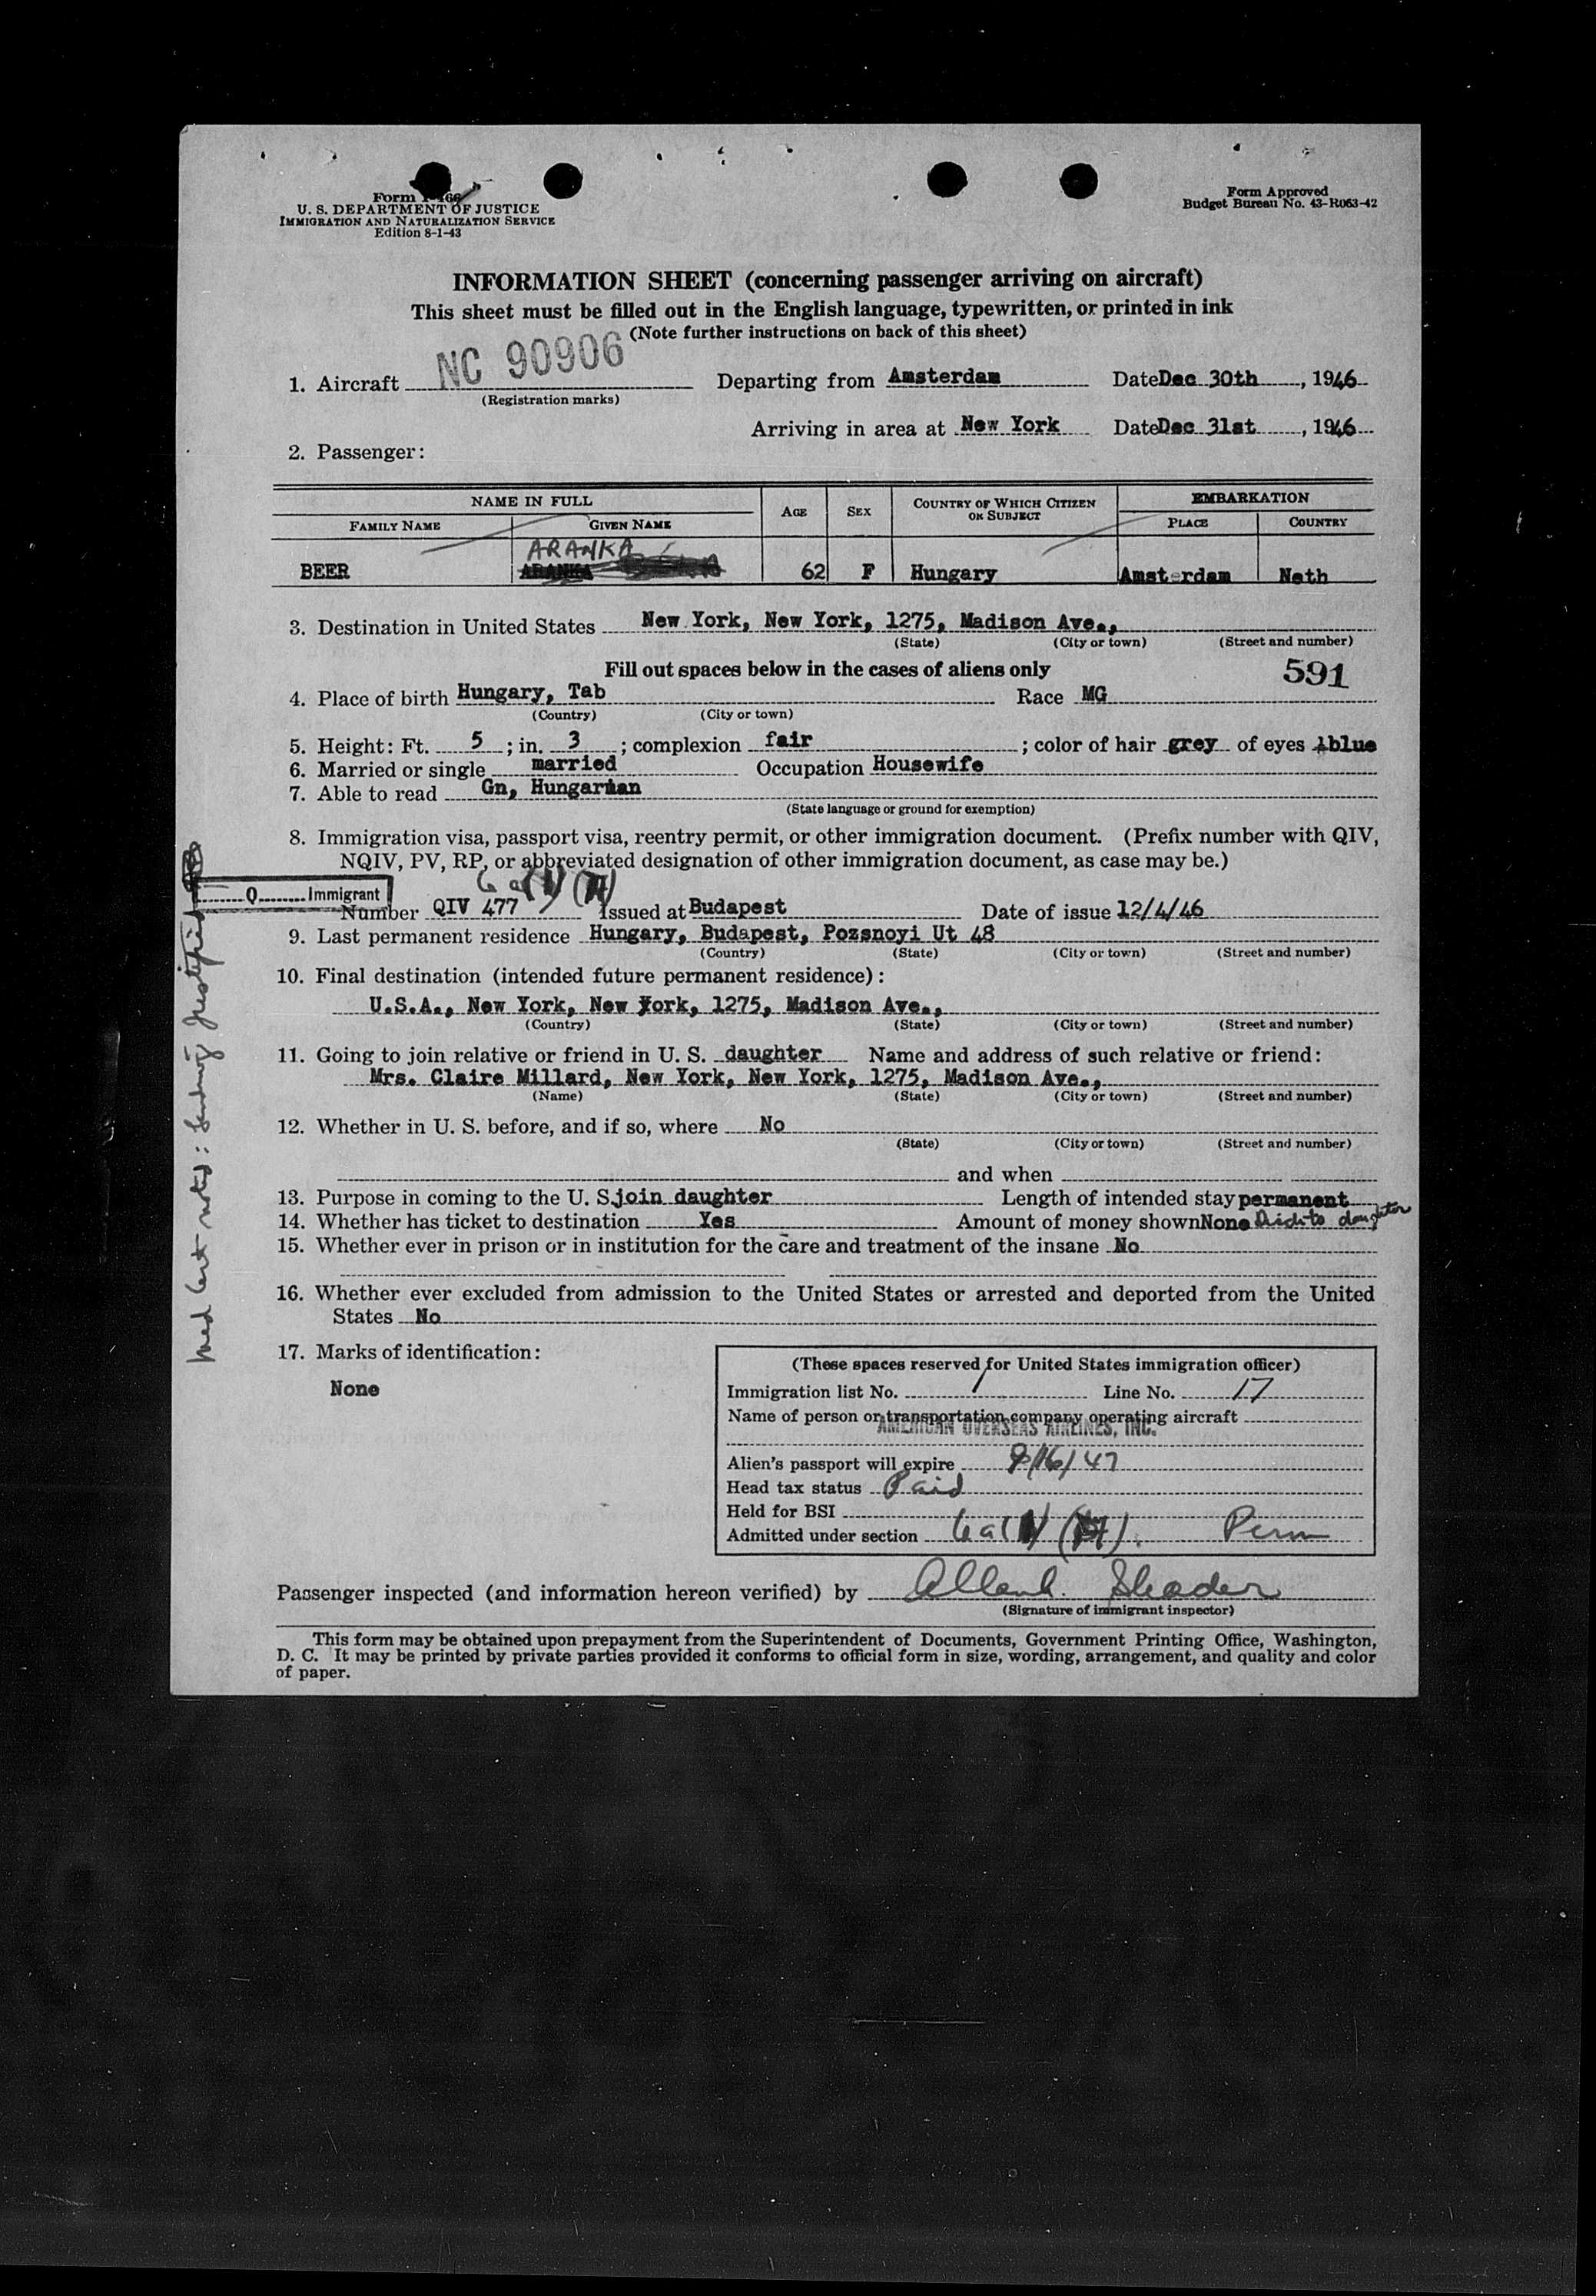 Form I-466
U. S. DEPARTMENT OF JUSTICE
IMMIGRATION AND NATURALIZATION SERVICE
Edition 8-1-43
Form Approved
Budget Bureau No. 43-R063-42
INFORMATION SHEET (concerning passenger arriving on aircraft)
This sheet must be filled out in the English language, typewritten, or printed in ink
(Note further instructions on back of this sheet)
1. Aircraft NC 90906 Departing from Amsterdam Date Dec 30th, 1946
(Registration marks)
Arriving in area at New York Date Dec 31st, 1946
2. Passenger:
NAME IN FULL AGE SEX COUNTRY OF WHICH CITIZEN OR SUBJECT EMBARKATION
FAMILY NAME GIVEN NAME PLACE COUNTRY
ARANKA
BEER ARANKA 62 F Hungary Amsterdam Neth
3. Destination in United States New York, New York, 1275, Madison Ave.,
(State) (City or town) (Street and number)
Fill out spaces below in the cases of aliens only 591
4. Place of birth Hungary, Tab Race MG
(Country) (City or town)
5. Height: Ft. 5 ; in. 3 ; complexion fair ; color of hair grey of eyes blue
6. Married or single married Occupation Housewife
7. Able to read Gn, Hungarian
(State language or ground for exemption)
8. Immigration visa, passport visa, reentry permit, or other immigration document. (Prefix number with QIV,
NQIV, PV, RP, or abbreviated designation of other immigration document, as case may be.)
Q Immigrant
Number QIV 477 Issued at Budapest Date of issue 12/4/46
9. Last permanent residence Hungary, Budapest, Pozsnoyi Ut 48
(Country) (State) (City or town) (Street and number)
10. Final destination (intended future permanent residence):
U.S.A., New York, New York, 1275, Madison Ave.,
(Country) (State) (City or town) (Street and number)
11. Going to join relative or friend in U. S. daughter Name and address of such relative or friend:
Mrs. Claire Millard, New York, New York, 1275, Madison Ave.,
(Name) (State) (City or town) (Street and number)
12. Whether in U. S. before, and if so, where No
(State) (City or town) (Street and number)
and when
13. Purpose in coming to the U. S. join daughter Length of intended stay permanent
14. Whether has ticket to destination Yes Amount of money shown None to daughter
15. Whether ever in prison or in institution for the care and treatment of the insane No
16. Whether ever excluded from admission to the United States or arrested and deported from the United
States No
17. Marks of identification:
None
(These spaces reserved for United States immigration officer)
Immigration list No. 1 Line No. 17
Name of person or transportation company operating aircraft
AMERICAN OVERSEAS AIRLINES, INC.
Alien's passport will expire 9/16/47
Head tax status Paid
Held for BSI
Admitted under section 6a Perm
Passenger inspected (and information hereon verified) by
(Signature of immigrant inspector)
This form may be obtained upon prepayment from the Superintendent of Documents, Government Printing Office, Washington,
D. C. It may be printed by private parties provided it conforms to official form in size, wording, arrangement, and quality and color
of paper.
Med Cert noted: